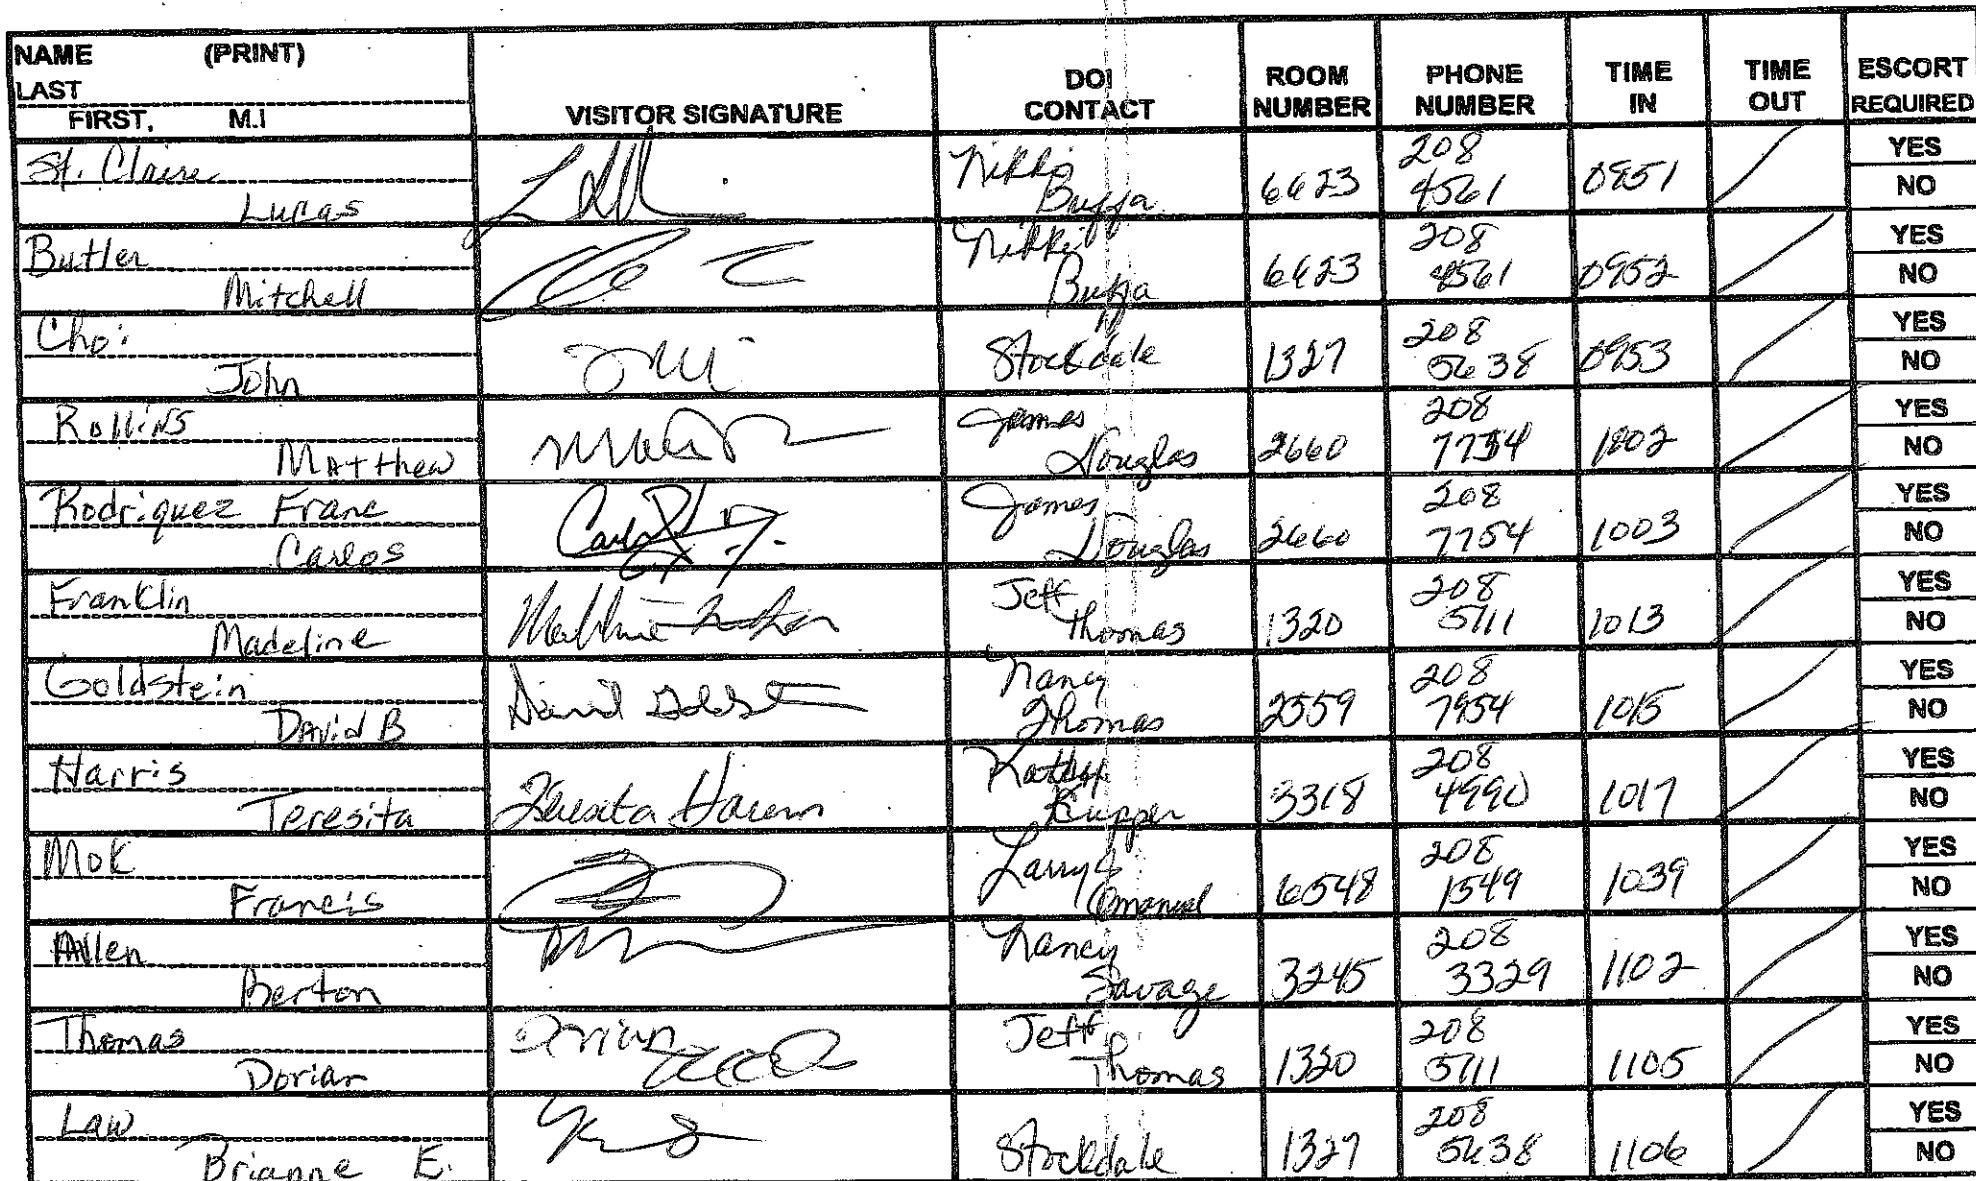 NAME (PRINT)
LAST
FIRST, M.I
VISITOR SIGNATURE
DOI CONTACT
ROOM NUMBER
PHONE NUMBER
TIME IN
TIME OUT
ESCORT REQUIRED
St. Claire
Lucas
Nikki
Buffa
6623
208
4561
0951
YES
NO
Butler
Mitchell
Nikki
Buffa
6623
208
4561
0952
YES
NO
Choi
John
Stockdale
1327
208
5638
0953
YES
NO
Rollins
Matthew
James
Douglas
2660
208
7754
1002
YES
NO
Rodriquez Franc
Carlos
James
Douglas
2660
208
7754
1003
YES
NO
Franklin
Madeline
Jeff
Thomas
1320
208
5711
1013
YES
NO
Goldstein
David B
David
Nancy
Thomas
2559
208
7954
1015
YES
NO
Harris
Teresita
Teresita Harris
Kathy
Kupper
3318
208
4990
1017
YES
NO
Mok
Francis
Larry
6548
208
1549
1039
YES
NO
Allen
Berton
Nancy
Savage
3245
208
3329
1102
YES
NO
Thomas
Dorian
Dorian
Jeff
Thomas
1320
208
5711
1105
YES
NO
Law
Brianne E.
Stockdale
1327
208
5638
1106
YES
NO